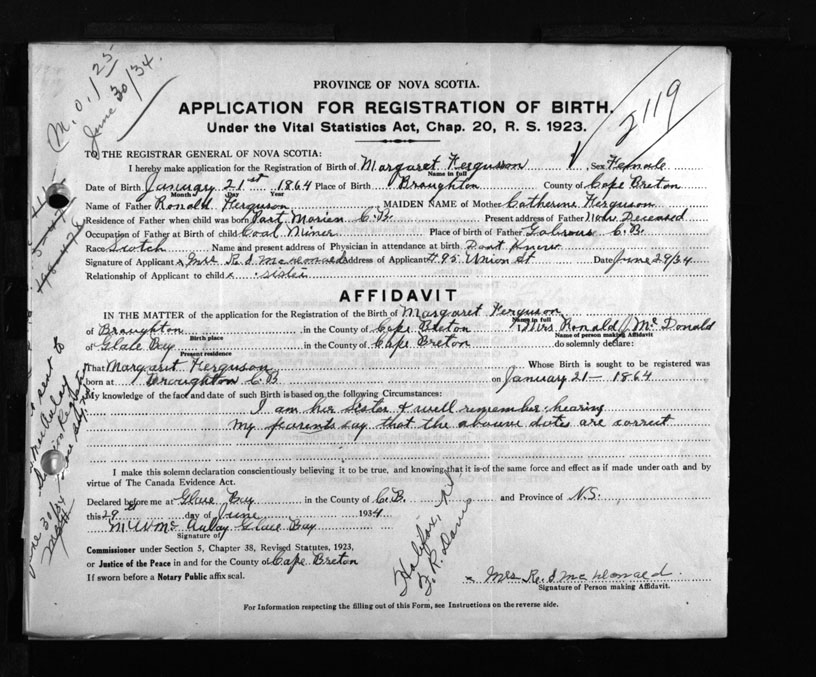 M.O./25
June 30/34.
2119
PROVINCE OF NOVA SCOTIA.
APPLICATION FOR REGISTRATION OF BIRTH.
Under the Vital Statistics Act, Chap. 20, R. S. 1923.
TO THE REGISTRAR GENERAL OF NOVA SCOTIA:
I hereby make application for the Registration of Birth of Margaret Ferguson Sex Female
Name in full
Date of Birth January 21st 1864 Place of Birth Broughton County of Cape Breton
Month Day Year
Name of Father Ronald Ferguson MAIDEN NAME of Mother Catherine Ferguson
Residence of Father when child was born Port Morien C.B. Present address of Father Now Deceased
Occupation of Father at Birth of child Coal Miner Place of birth of Father Gabrous C.B.
Race Scotch Name and present address of Physician in attendance at birth Dont Know
Signature of Applicant x Mrs R. J McDonald Address of Applicant 95 Union St Date June 29/34
Relationship of Applicant to child x sister
AFFIDAVIT
IN THE MATTER of the application for the Registration of the Birth of Margaret Ferguson
Name in full
of Broughton in the County of Cape Breton I Mrs Ronald J. McDonald
Birth place Name of person making Affidavit
of Glace Bay in the County of Cape Breton do solemnly declare:
Present residence
That Margaret Ferguson Whose Birth is sought to be registered was
born at Broughton C.B on January 21 — 1864
My knowledge of the fact and date of such Birth is based on the following Circumstances:
I am her sister & well remember hearing
my parents say that the above dates are correct
I make this solemn declaration conscientiously believing it to be true, and knowing that it is of the same force and effect as if made under oath and by
virtue of The Canada Evidence Act.
Declared before me at Glace Bay in the County of C.B. and Province of N.S.
this 29 day of June 1934
M W McAulay Glace Bay
Signature of
Commissioner under Section 5, Chapter 38, Revised Statutes, 1923,
or Justice of the Peace in and for the County of Cape Breton
If sworn before a Notary Public affix seal.
Halifax, N
F. R. Davis
x Mrs R. J McDonald.
Signature of Person making Affidavit.
For Information respecting the filling out of this Form, see Instructions on the reverse side.
sent to
McAulay
June 30/34